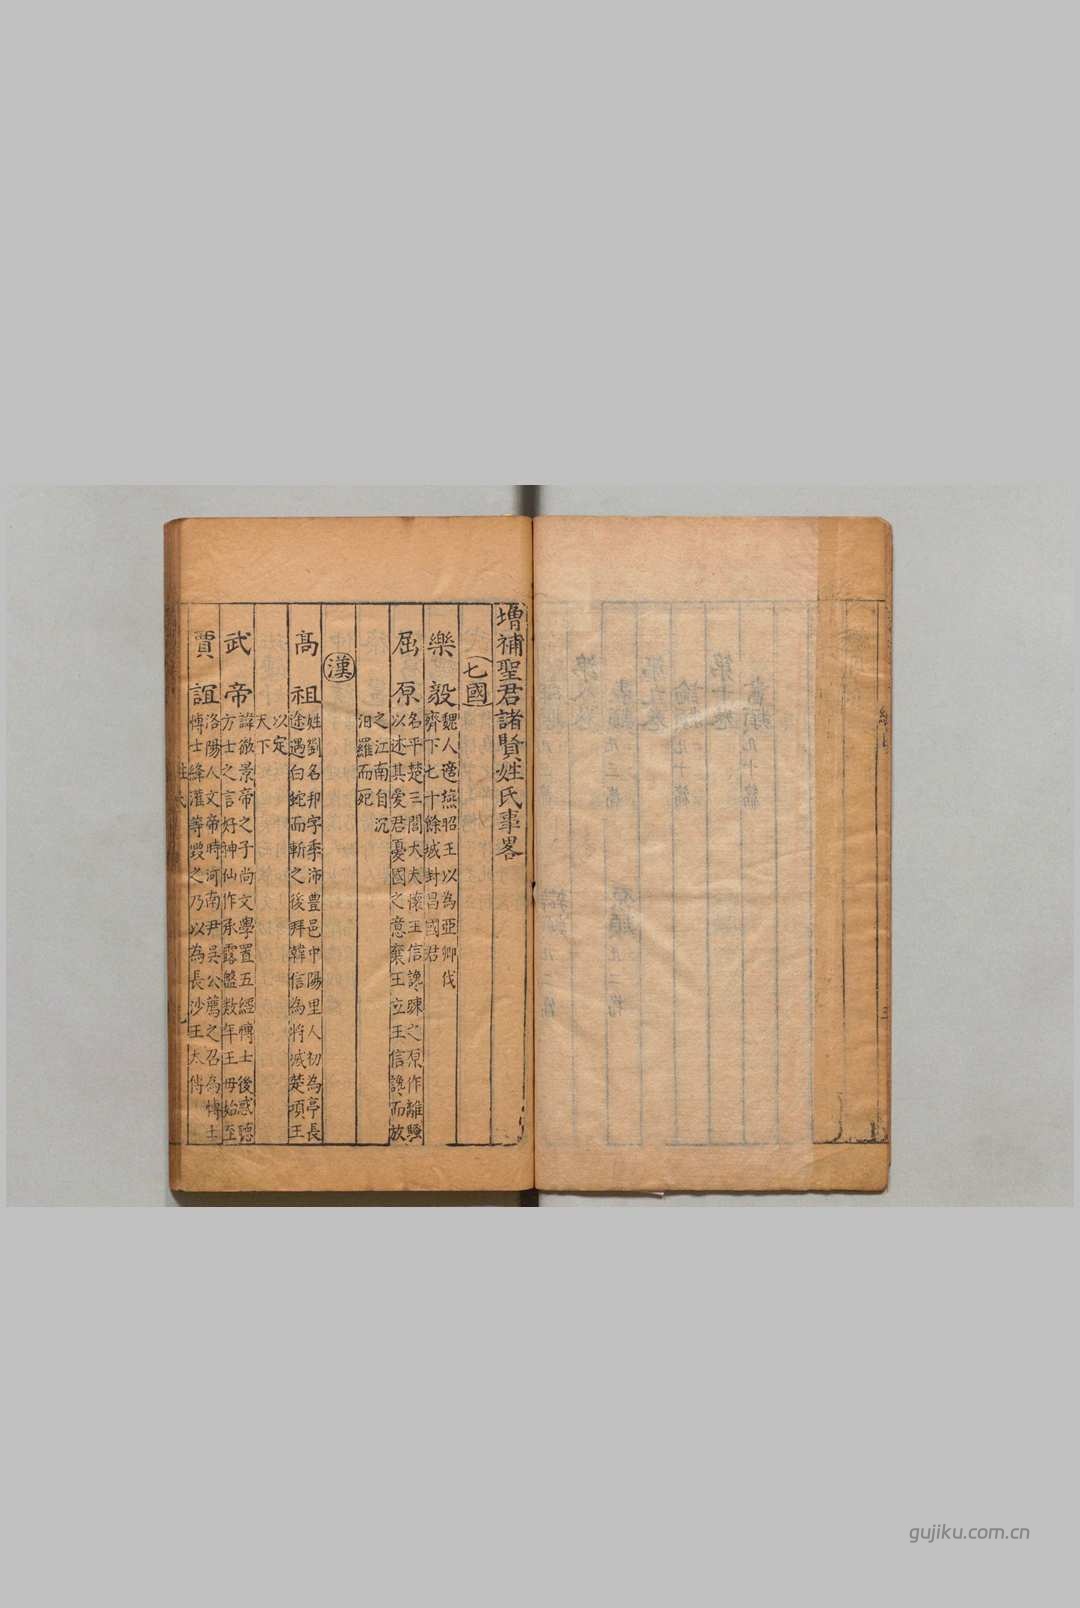 增補聖君諸賢姓氏事畧
七國
樂毅 魏人適燕昭王以為亞卿伐
齊下七十餘城封昌國君
屈原 名平楚三閭大夫懷王信讒疎之原作離騷
以述其愛君憂國之意襄王立王信讒而放
之江南自沉
汨羅而死
漢
高祖 姓劉名邦字季沛豊邑中陽里人初為亭長
途遇白蛇而斬之後拜韓信為將滅楚項王
以定
天下
武帝 諱徹景帝之子尚文學置五經博士後惑聽
方士之言好神仙作承露盤数年王母始至
賈誼 洛陽人文帝時河南尹吳公薦之召為博士
博士絳灌等毀之乃以為長沙王太傅
gujiku.com.cn